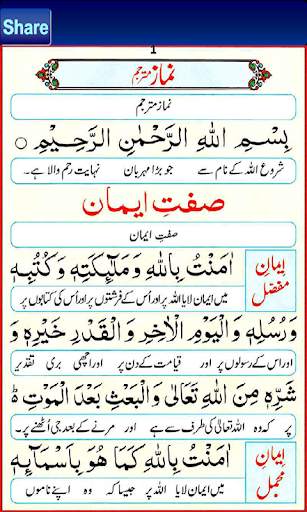 Share
1
نماز مترجم
نماز مترجم
بِسْمِ اللّٰهِ الرَّحْمٰنِ الرَّحِيْمِ ○
شروع اللہ کے نام سے جو بڑا مہربان نہایت رحم والا ہے۔
صفتِ ایمان
صفتِ ایمان
ایمانِ مفصل
اٰمَنْتُ بِاللّٰهِ وَمَلٰٓئِكَتِهٖ وَكُتُبِهٖ
میں ایمان لایا اللہ پر اور اُس کے فرشتوں پر اور اُس کی کتابوں پر
وَرُسُلِهٖ وَالْيَوْمِ الْاٰخِرِ وَالْقَدْرِ خَيْرِهٖ وَ
اور اس کے رسولوں پر اور قیامت کے دن پر اور اچھی بری تقدیر
شَرِّهٖ مِنَ اللّٰهِ تَعَالٰى وَالْبَعْثِ بَعْدَ الْمَوْتِ ط
پر کہ وہ اللہ تعالیٰ کی طرف سے ہے اور مرنے کے بعد جی اُٹھنے پر۔
ایمانِ مجمل
اٰمَنْتُ بِاللّٰهِ كَمَا هُوَ بِاَسْمَآئِهٖ
میں ایمان لایا اللہ پر جیسا کہ وہ اپنے ناموں